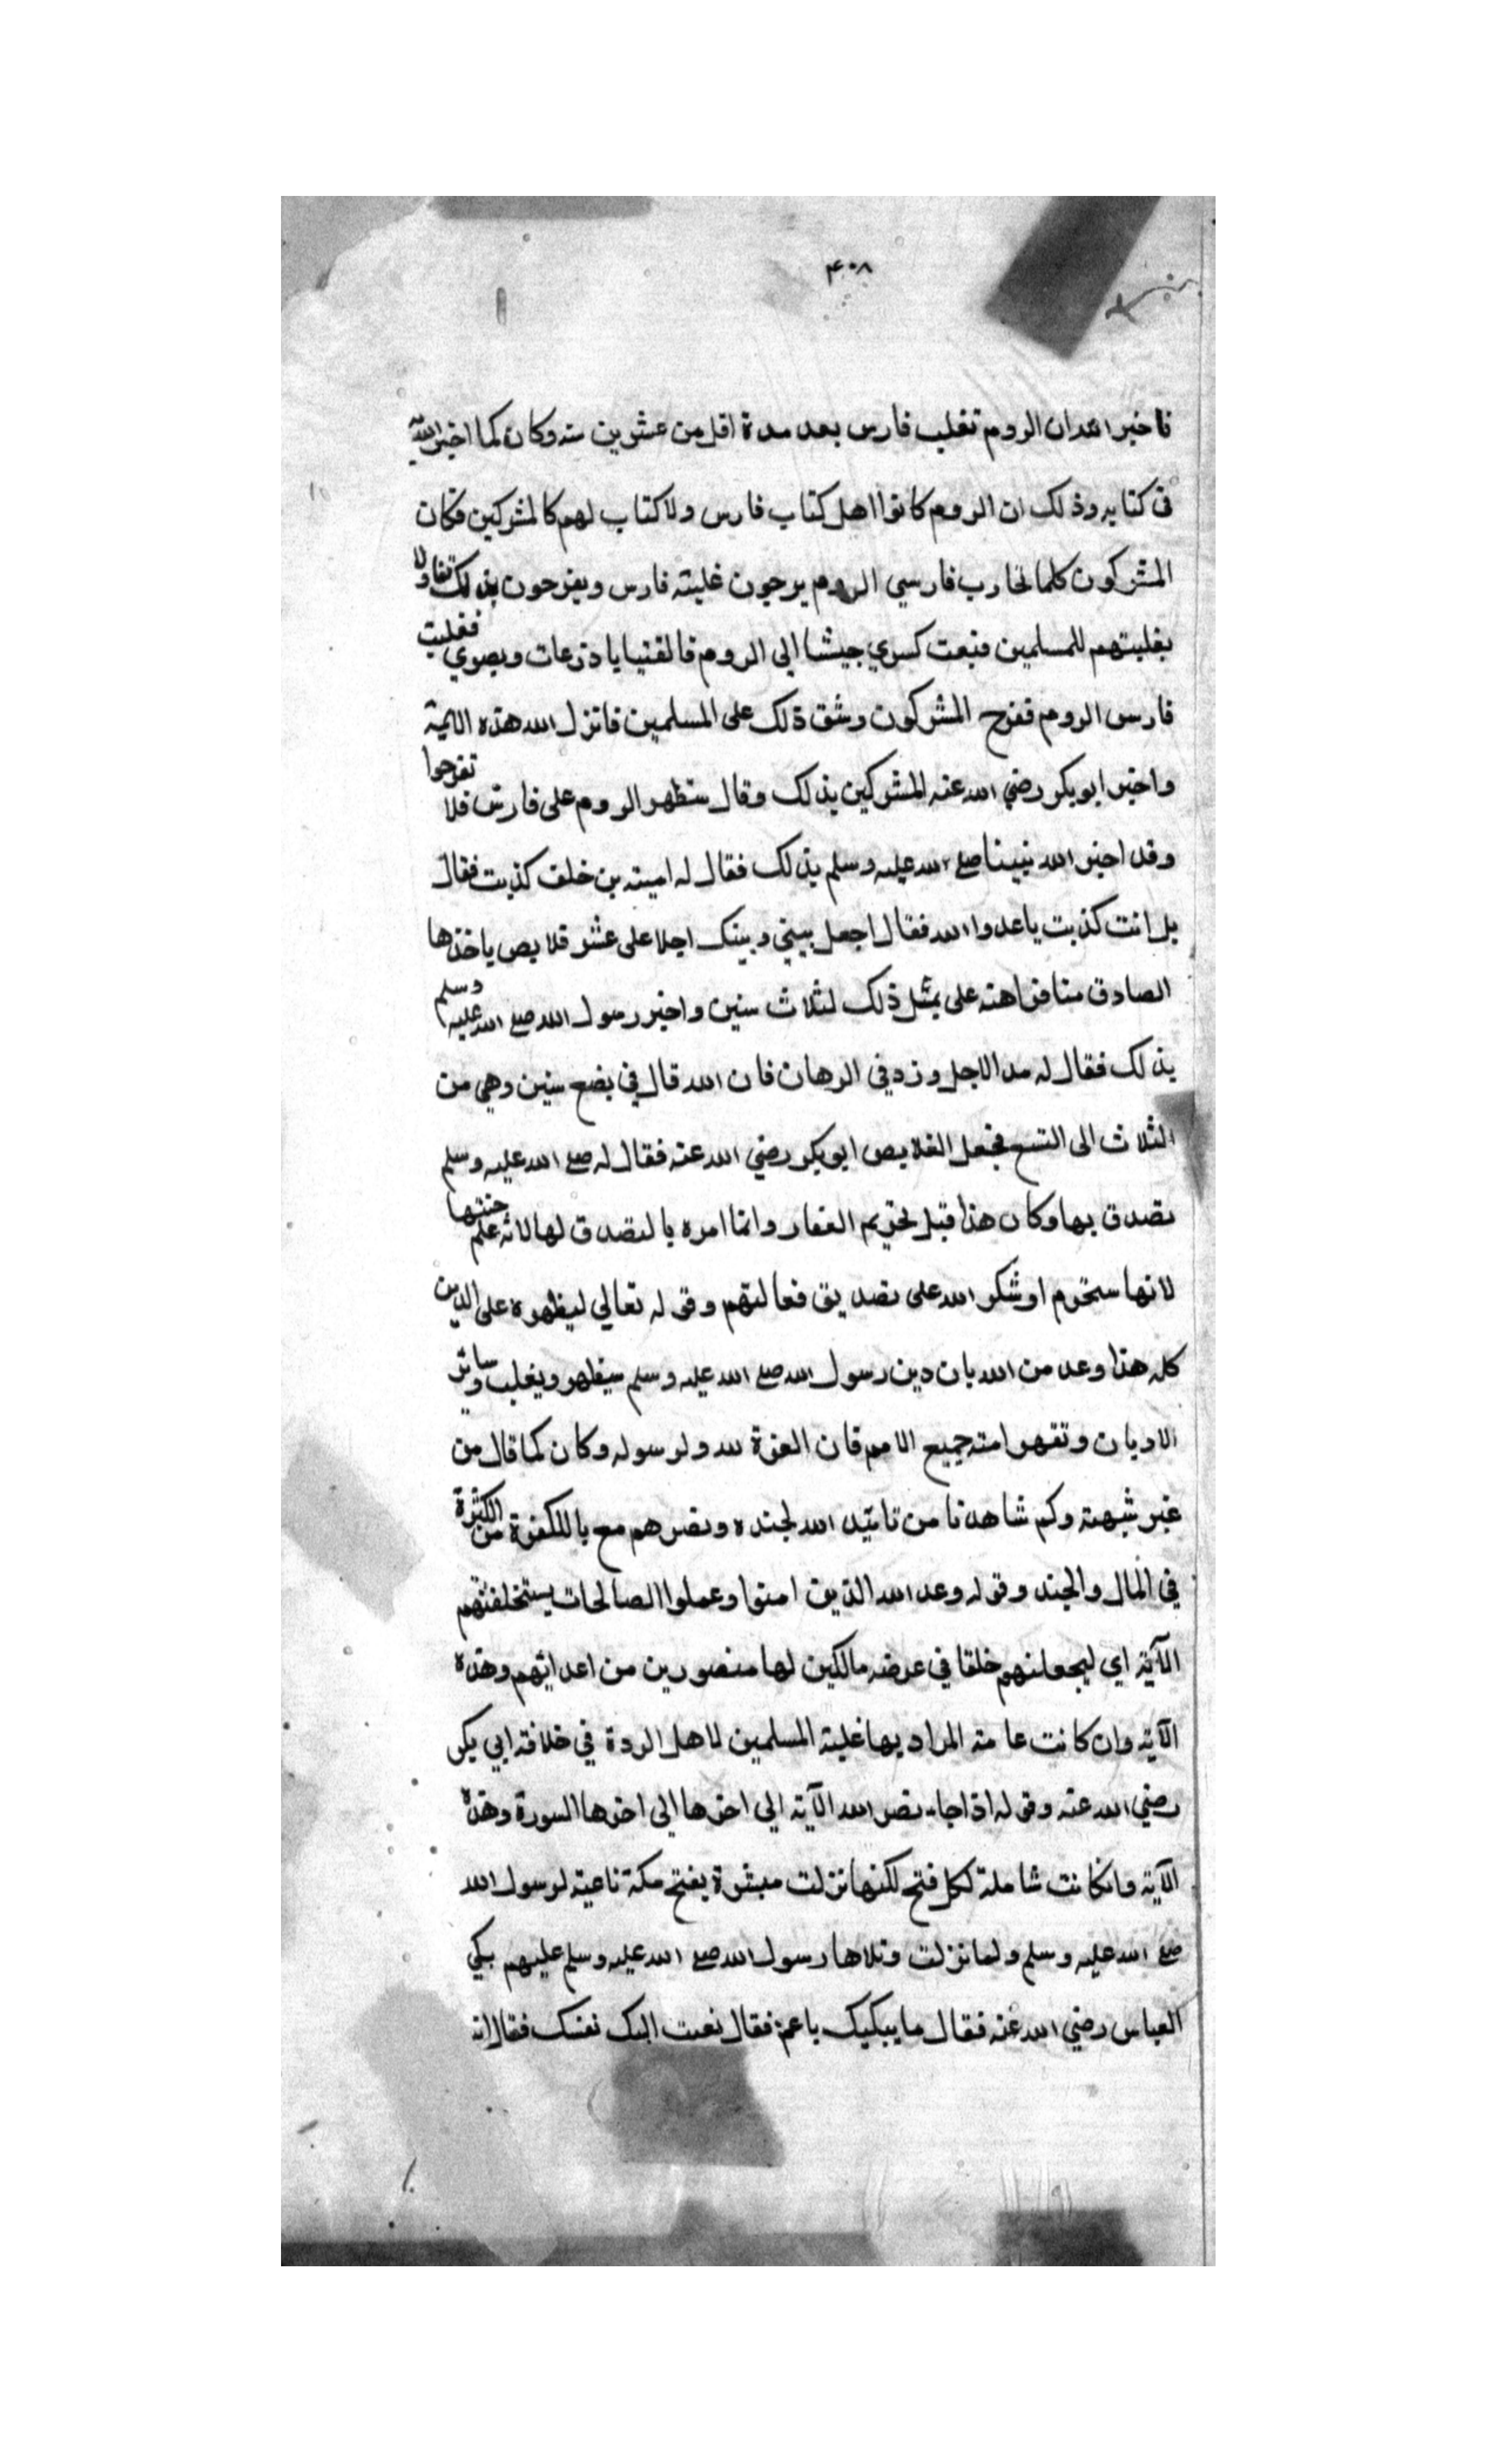 ۴۰۸
فاخبر الله ان الروم تغلب فارس بعد مدة اقل من عشرين سنه وكان كما اخبر الله
في كتابه وذلك ان الروم كانوا اهل كتاب فارس ولا كتاب لهم كالمشركين فكان
المشركون كلما تحارب فارسي الروم يرجون غلبته فارس ويفرحون بذلك تفاولا
بغلبتهم للمسلمين فبعت كسري جيشا الي الروم فالقنيا باذرعات وبصري فغلبت
فارس الروم ففرح المشركون وشق ذلك على المسلمين فانزل الله هذه الاية
واخبر ابو بكر رضي الله عنه المشركين بذلك وقال ستظهر الروم على فارس فلا تفرحوا
وقد اخبر الله نبينا صلع الله عليه وسلم بذلك فقال له اميته بن خلف كذبت فقال
بل انت كذبت يا عدوا الله فقال اجعل بيني وبينك اجلا على عشر قلايص ياخذها
الصادق منا فراهنه على مثل ذلك لثلاث سنين واخبر رسول الله صلع الله عليه وسلم
بذلك فقال له مد الاجل وزد في الرهان فان الله قال في بضع سنين وهي من
الثلاث الى التسع فجعل القلايص ابو بكر رضي الله عنه فقال له صلع الله عليه وسلم
تصدق بها وكان هذا قبل تحريم القمار وانما امره بالتصدق لها لانه علم خبثها
لانها ستحرم او شكر الله على تصديق فعالتهم وقوله تعالي ليظهره على الدين
كله هذا وعد من الله بان دين رسول الله صلع الله عليه وسلم سيظهر ويغلب سائر
الاديان وتقهر امته جميع الامم فان العزة لله ولرسوله وكان كما قال من
غير شبهته وكم شاهدنا من تائيد الله لجنده ونصرهم مع باللكفرة من الكثرة
في المال والجند وقوله وعد الله الذين امنوا وعملوا الصالحات يستخلفنهم
الآية اي ليجعلنهم خلقا في عرضه مالكين لها منصورين من اعدائهم وهذه
الآية وان كانت عامة المراد بها غلبته المسلمين لاهل الردة في خلافة ابي بكر
رضي الله عنه وقوله اذا جاء نصر الله الآية الي اخرها الى اخرها السورة وهذه
الآية وانكانت شاملة لكل فتح لكنها نزلت مبشرة بفتح مكة ناعية لرسول الله
صلع الله عليه وسلم ولما نزلت وتلاها رسول الله صلع الله عليه وسلم عليهم بكي
العباس رضي الله عنه فقال ما يبكيك يا عم فقال نعيت اليك نفسك فقال انه